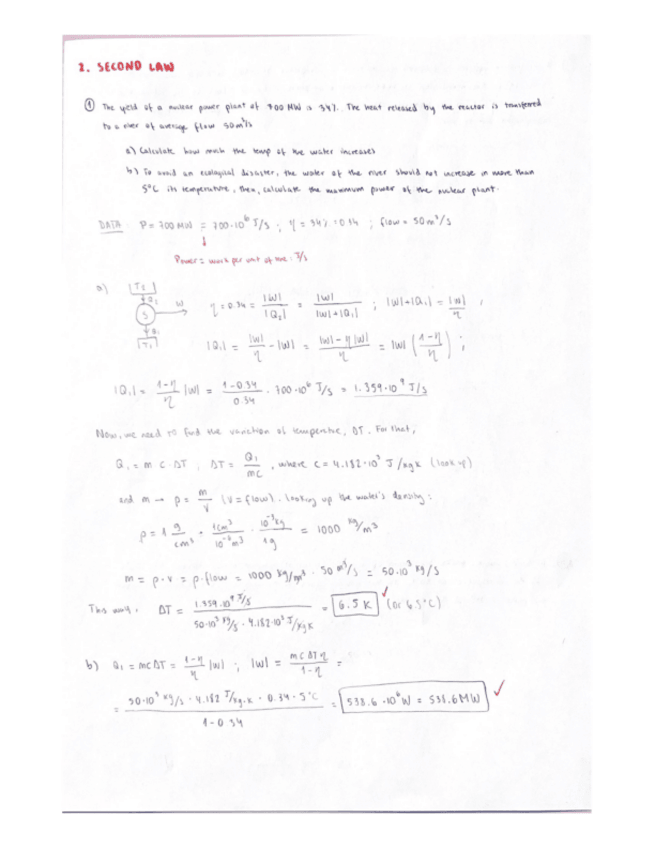 2. SECOND LAW
① The yield of a nuclear power plant of 700 MW is 34%. The heat released by the reactor is transferred
to a river of average flow 50 m³/s
a) Calculate how much the temp of the water increases
b) To avoid an ecological disaster, the water of the river should not increase in more than
5°C its temperature, then, calculate the maximum power of the nuclear plant.
DATA P = 700 MW = 700·10⁶ J/s ; η = 34% = 0.34 ; flow = 50 m³/s
↓
Power = work per unit of time. J/s
a) T₂ Q₂ W S Q₁ T₁
η = 0.34 = |W| / |Q₂| = |W| / (|W|+|Q₁|) ; |W|+|Q₁| = |W| / η ;
|Q₁| = |W|/η - |W| = (|W| - η|W|) / η = |W| ((1-η)/η) ;
|Q₁| = (1-η)/η |W| = (1-0.34)/0.34 · 700·10⁶ J/s = 1.359·10⁹ J/s
Now, we need to find the variation of temperature, ΔT. For that,
Q₁ = m c · ΔT ; ΔT = Q₁ / mc , where c = 4.182·10³ J/kgK (look up)
and m → ρ = m/V (V = flow). Looking up the water's density:
ρ = 1 g/cm³ · 1cm³/10⁻⁶m³ · 10⁻³kg/1g = 1000 kg/m³
m = ρ·V = ρ·flow = 1000 kg/m³ · 50 m³/s = 50·10³ kg/s
This way, ΔT = 1.359·10⁹ J/s / (50·10³ kg/s · 4.182·10³ J/kgK) = 6.5 K ✓ (or 6.5°C)
b) Q₁ = mcΔT = (1-η)/η |W| ; |W| = mcΔTη / (1-η) =
= (50·10³ kg/s · 4.182 J/kg·K · 0.34 · 5°C) / (1-0.34) = 538.6·10⁶ W = 538.6MW ✓